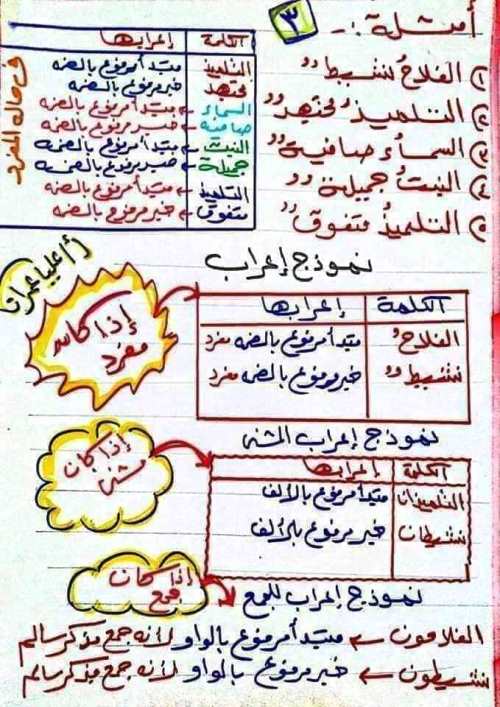 ٣
أمثلة :-
١) الفلاحُ نشيطٌ
٢) التلميذُ مُجتهدٌ
٣) السماءُ صافيةٌ
٤) البنتُ جميلةٌ
٥) التلميذُ متفوقٌ
الكلمة إعرابها
التلميذ مبتدأ مرفوع بالضمه
مجتهد خبر مرفوع بالضمه
السماء ← مبتدأ مرفوع بالضمه
صافيه ← خبر مرفوع بالضمه
البنت ← مبتدأ مرفوع بالضمه
جميلة ← خبر مرفوع بالضمه
التلميذ ← مبتدأ مرفوع بالضمه
متفوق ← خبر مرفوع بالضمه
فى حالة المفرد
نموذج إعراب
الكلمة إعرابها
الفلاحُ مبتدأ مرفوع بالضمه مفرد
نشيطٌ خبر مرفوع بالضمه مفرد
إذا كانت
مفرد
نموذج إعراب المثنه
الكلمة إعرابها
التلميذان مبتدأ مرفوع بالألف
نشيطان خبر مرفوع بالألف
إذا كان
مثنه
نموذج إعراب للجمع
إذا كان
جمع
الفلاحون ← مبتدأ مرفوع بالواو لأنه جمع مذكر سالم
نشيطون ← خبر مرفوع بالواو لأنه جمع مذكر سالم